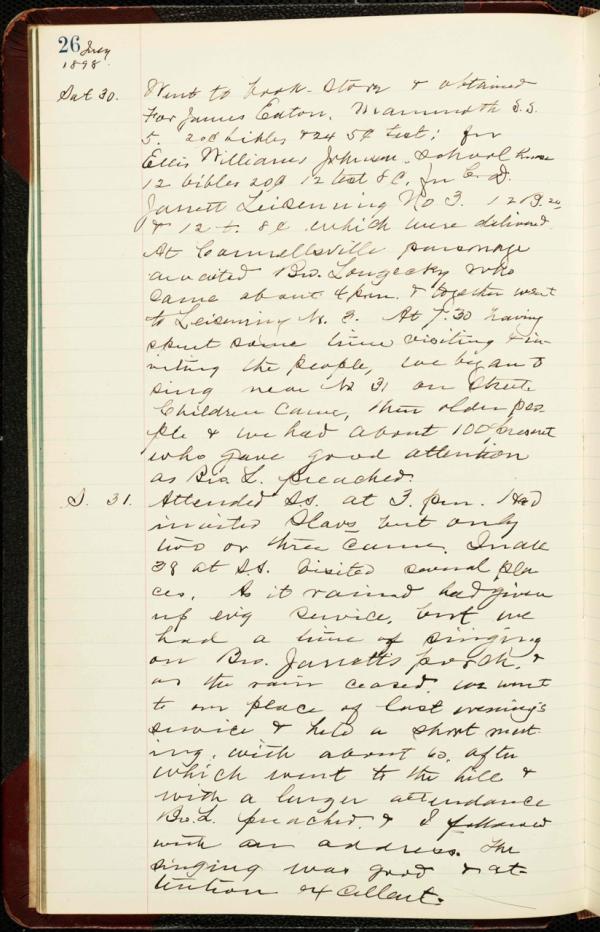 26 July
1898.
Sat 30. Went to book-store & obtained
For James Eaton, Mammoth S.S.
5. 20¢ bibles & 24 5¢ test; for
Ellis Williams Johnson school house
12 bibles 20¢ 12 test 8¢, for C. D.
Jarrett Leisenring No 3. 12 B. 20
& 12 t. 8¢ which were delivered.
At Connellsville parsonage
awaited Bro. Longacre who
came about 4 p.m. & together went
to Leisenring No. 3. At 7.30 having
spent some time visiting & in-
viting the people, we began to
sing near No 31 on Street
Children came, then older peo
ple & we had about 100 present
who gave good attention
as Bro. L. preached.
S. 31. Attended S.S. at 3. p.m. Had
invited Slavs but only
two or three came. In all
38 at S.S. Visited several pla
ces. As it rained had given
up evg service, but we
had a time of singing
on Bro. Jarrett's porch, &
as the rain ceased, we went
to our place of last evening's
service & held a short meet
ing, with about 60, after
which went to the hill &
with a larger attendance
Bro. L. preached, & I followed
with an address. The
singing was good & at-
tention excellent.